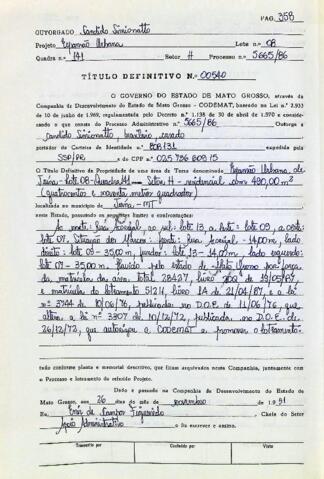 PAG. 358
OUTORGADO Candido Simionatto
Projeto Expansão Urbana Lote n.º 08
Quadra n.º 141 Setor H Processo n.º 5665/86
TÍTULO DEFINITIVO N.º 00540
O GOVERNO DO ESTADO DE MATO GROSSO, através da
Companhia de Desenvolvimento do Estado de Mato Grosso - CODEMAT, baseado na Lei n.º 2.933
de 10 de junho de 1969, regulamentada pelo Decreto n.º 1.138 de 30 de abril de 1970 e considerando
o que consta do Processo Administrativo n.º 5665/86. Outorga a
Candido Simionatto, brasileiro, casado
portador da Carteira de Identidade n.º 808131
SSP/PR e do CPF n.º 025 756 609 15
O Título Definitivo de Propriedade de uma área de Terra denominada Expansão Urbana, de
Juína - Lote 08 - Quadra 141 - Setor H - residencial com 490,00 m²
(quatrocentos e noventa metros quadrados)
localizada no município de Juína - MT
neste Estado, passando os seguintes limites e confrontações:
Ao norte: Rua Projetada, ao sul: lote 13, a leste: lote 09, a oeste:
lote 07. Situação dos Marcos: frente: Rua Projetada - 14,00m, lado
direito: lote 09 - 35,00 m, fundos: lote 13 - 14,00m lado esquerdo:
lote 07 - 35,00 m. Havido pelo estado de Mato Grosso por força
da matrícula da área total 28437, livro de 19/05/87,
e matrícula do loteamento 51211, livro 1A de 21/04/87, e a lei
nº 3744 de 10/06/76, publicada no D.O.E de 11/06/76, que
altera a lei nº 3307 de 10/12/72, publicada no D.O.E. de
26/12/72, que autoriza a CODEMAT a promover o loteamento.
tudo conforme planta e memorial descritivo, que ficam arquivados nesta Companhia, juntamente com
o Processo e loteamento do referido Projeto.
Dado e passado na Companhia de Desenvolvimento do Estado de
Mato Grosso, aos 26 dias do mês de novembro de 1991
Eu, de Campos Figueiredo Chefe do Setor
Apoio Administrativo o fiz escrever e assino.
Transcrito por Conferido por Visto